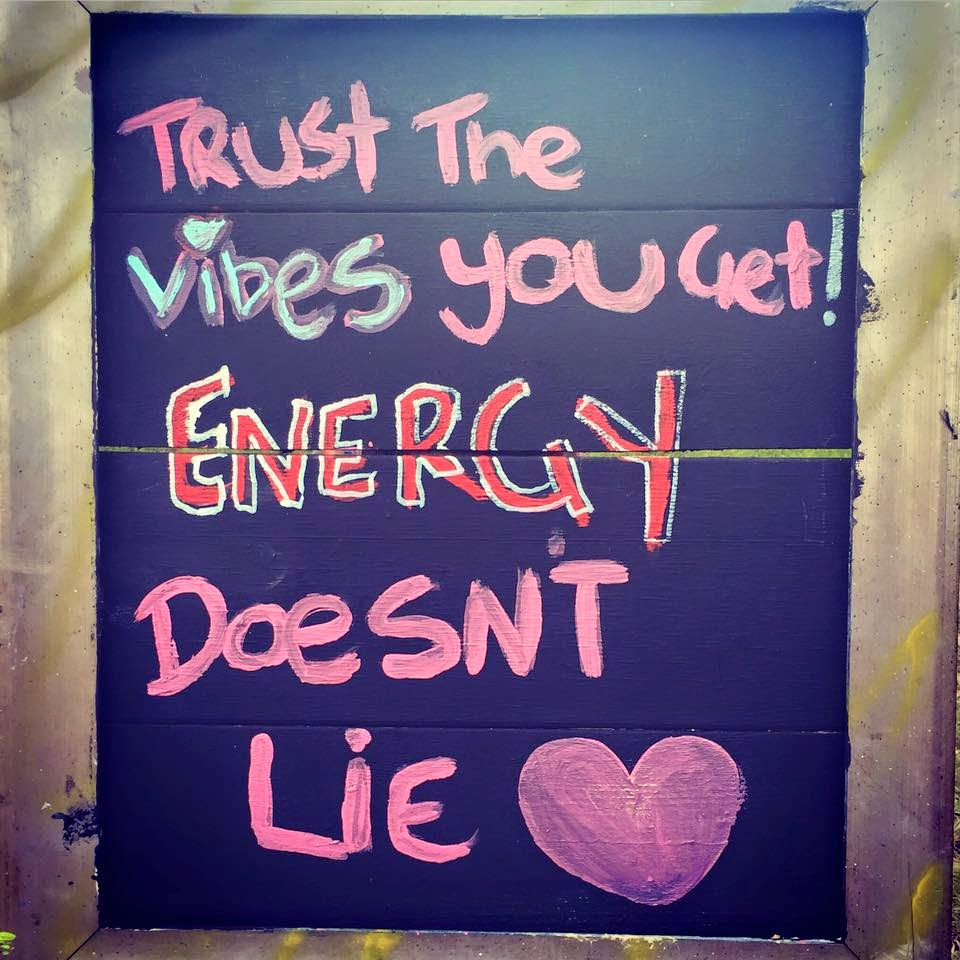 TRUST The
vibes you Get!
ENERGY
DoesN'T
LiE